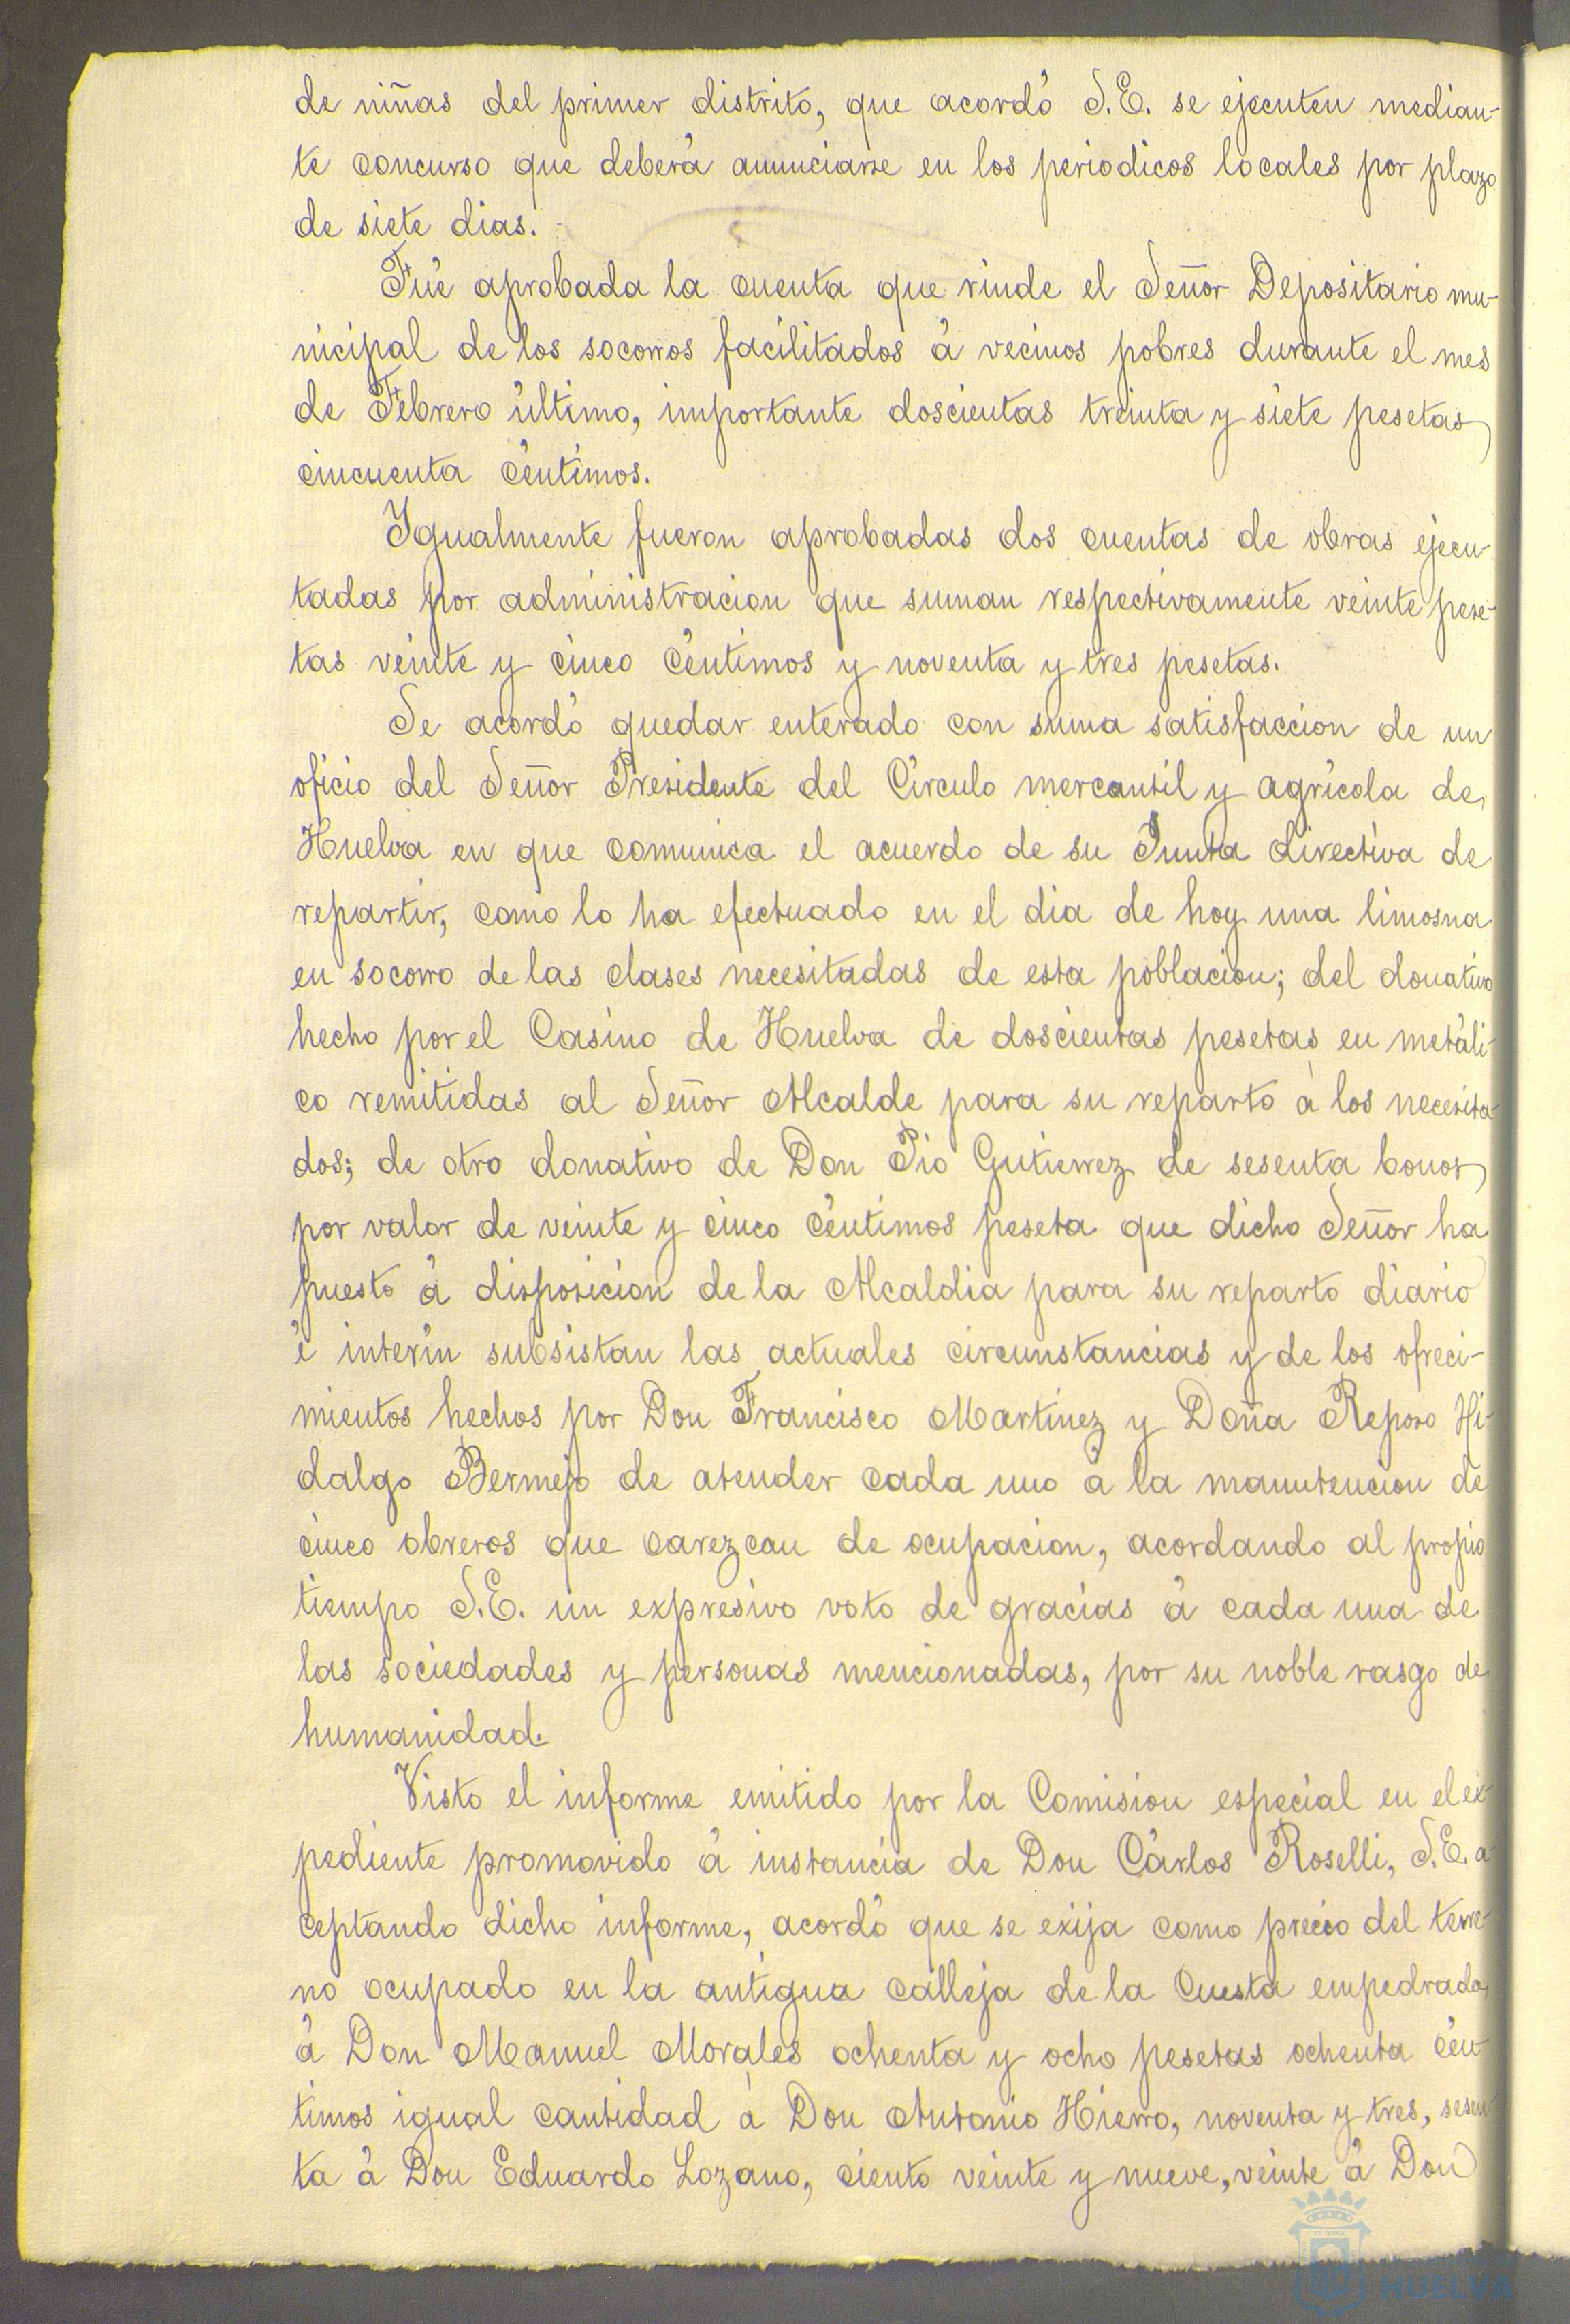 de niñas del primer distrito, que acordó S.E. se ejecuten median-
te concurso que deberá anunciarse en los periodicos locales por plazo
de siete dias.
Fué aprobada la cuenta que rinde el Señor Depositario mu-
nicipal de los socorros facilitados á vecinos pobres durante el mes
de Febrero último, importante doscientas treinta y siete pesetas
cincuenta céntimos.
Igualmente fueron aprobadas dos cuentas de obras ejecu-
tadas por administracion que suman respectivamente veinte pese-
tas veinte y cinco céntimos y noventa y tres pesetas.
Se acordó quedar enterado con suma satisfaccion de un
oficio del Señor Presidente del Círculo mercantil y agrícola de
Huelva en que comunica el acuerdo de su Junta directiva de
repartir, como lo ha efectuado en el dia de hoy una limosna
en socorro de las clases necesitadas de esta poblacion; del donativo
hecho por el Casino de Huelva de doscientas pesetas en metáli-
co remitidas al Señor Alcalde para su reparto á los necesita-
dos; de otro donativo de Don Pio Gutierrez de sesenta bonos
por valor de veinte y cinco céntimos peseta que dicho Señor ha
puesto á disposicion de la Alcaldia para su reparto diario
é interín subsistan las actuales circunstancias y de los ofreci-
mientos hechos por Don Francisco Martinez y Doña Reposo Hi-
dalgo Bermejo de atender cada uno á la manutencion de
cinco obreros que carezcan de ocupacion, acordando al propio
tiempo S.E. un expresivo voto de gracias á cada una de
las sociedades y personas mencionadas, por su noble rasgo de
humanidad.
Visto el informe emitido por la Comision especial en el ex-
pediente promovido á instancia de Don Cárlos Roselli, S.E. a-
ceptando dicho informe, acordó que se exija como precio del terre-
no ocupado en la antígua calleja de la Cuesta empedrada,
á Don Manuel Morales ochenta y ocho pesetas ochenta cén-
timos igual cantidad á Don Antonio Hierro, noventa y tres, sesen-
ta á Don Eduardo Lozano, ciento veinte y nueve, veinte á Don
HUELVA